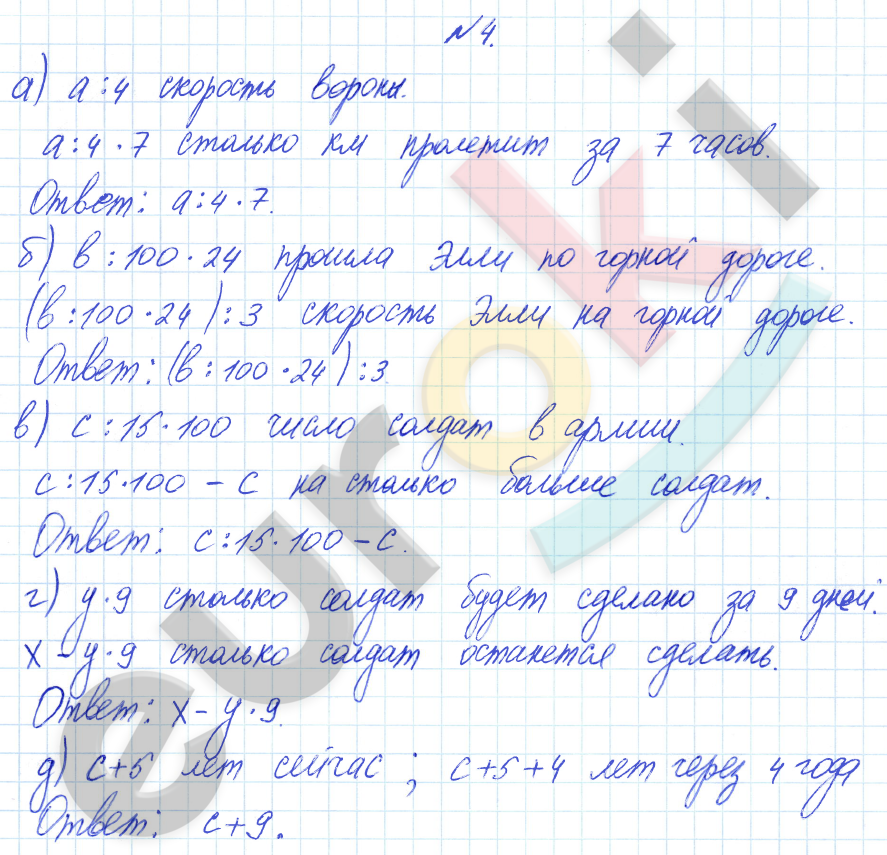 № 4.
а) а : 4 скорость вороны.
а : 4 · 7 столько км пролетит за 7 часов.
Ответ: а : 4 · 7.
б) в : 100 · 24 прошла Элли по горной дороге.
(в : 100 · 24) : 3 скорость Элли на горной дороге.
Ответ: (в : 100 · 24) : 3.
в) с : 15 · 100 число солдат в армии.
с : 15 · 100 – с на столько больше солдат.
Ответ: с : 15 · 100 – с.
г) у · 9 столько солдат будет сделано за 9 дней.
х – у · 9 столько солдат останется сделать.
Ответ: х – у · 9.
д) с + 5 лет сейчас ; с + 5 + 4 лет через 4 года
Ответ: с + 9.
euroki